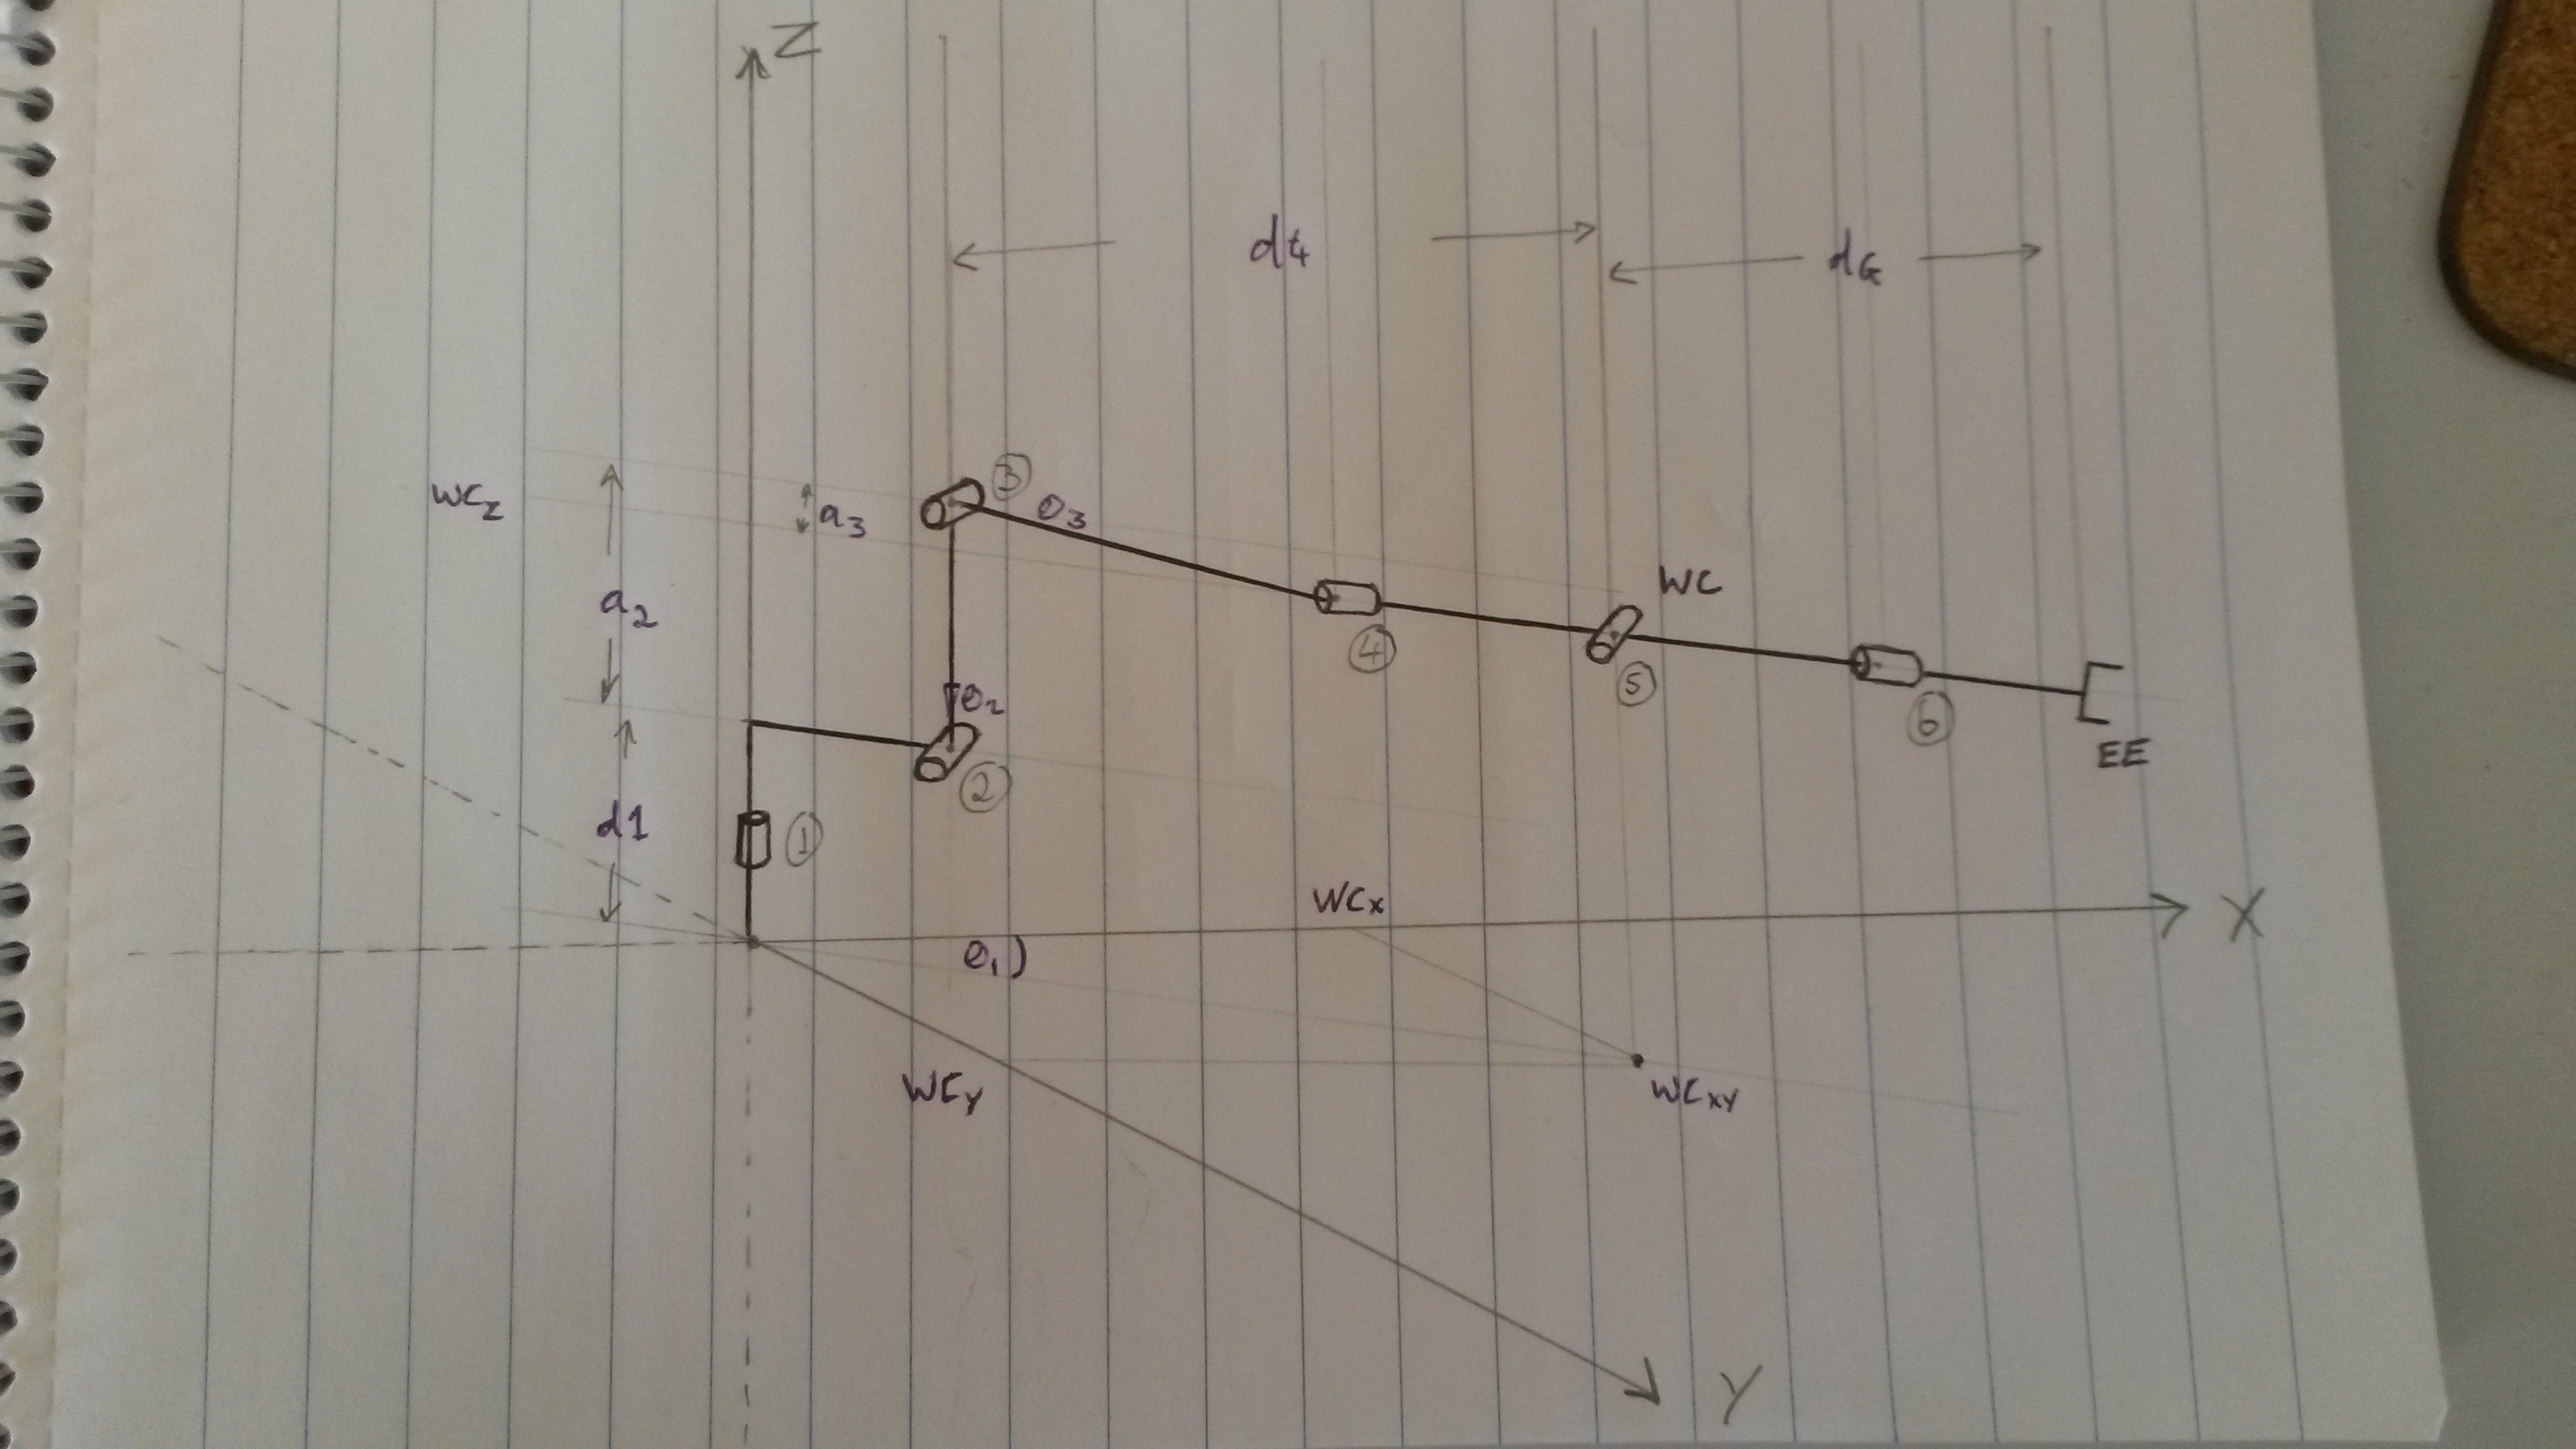 Z
d4
dG
WCz
a3
3
θ3
a2
WC
4
5
θ2
6
EE
2
d1
1
WCx
X
θ1)
WCY
WCXY
Y